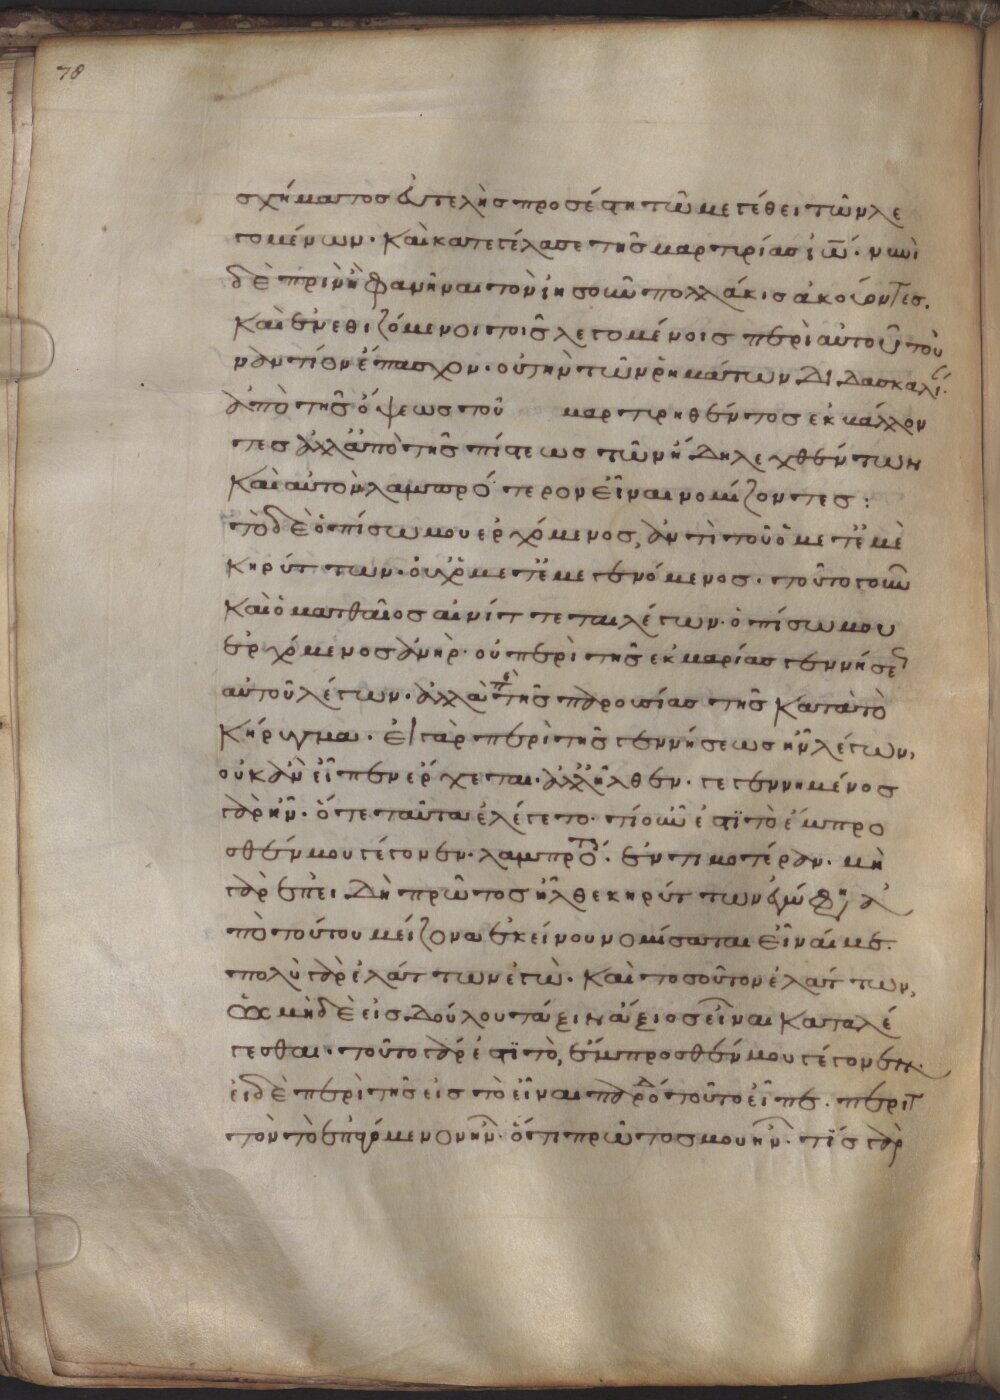 78
σχήματος εὐτελὴς προσέστη τῶ μεγέθει τῶν λε
γομένων· καὶ κατεγέλασε τῆς μαρτυρίας ἰω̅· νυνὶ
δὲ πρὶν ἢ φανῆναι τὸν ἰησοῦν πολλάκις ἀκούοντες.
καὶ ἐνεθιζόμενοι τοῖς λεγομένοις περὶ αὐτοῦ τοὐ
ναντίον ἔπασχον· οὐ τὴν τῶν ῥημάτων διδασκαλί
ἀπὸ τῆς ὄψεως τοῦ μαρτυρηθέντος ἐκβάλλον
τες ἀλλ' ἀπὸ τῆς πίστεως τῶν ἤδη λεχθέντων
καὶ αὐτὸν λαμπρότερον εἶναι νομίζοντες :
τὸ δὲ ὀπίσω μου ἐρχόμενος, ἀντὶ τοῦ ὁ μετ' ἐμὲ
κηρύττων· οὐχ ὁ μετ' ἐμὲ γενόμενος· τοῦτο γοῦν
καὶ ὁ ματθαῖος αἰνίττεται λέγων· ὀπίσω μου
ἐρχόμενος ἀνήρ· οὐ περὶ τῆς ἐκ μαρίας γεννήσε
αὐτοῦ λέγων· ἀλλὰ περὶ τῆς παρουσίας τῆς κατὰ τὸ
κήρυγμα· εἰ γὰρ περὶ τῆς γεννήσεως ἦν λέγων,
οὐκ ἂν εἶπεν ἔρχεται· ἀλλ' ἦλθεν· γεγεννημένος
γὰρ ἦν· ὅτε ταῦτα ἐλέγετο· τί οὖν ἐστὶ τὸ ἔμπρο
σθέν μου γέγονεν· λαμπρότ· ἐντιμοτέραν· μὴ
γὰρ ἐπειδὴ πρῶτος ἦλθε κηρύττων ἐγώ φη ἀ
πὸ τούτου μείζονα ἐκείνου νομίσαται εἶναί με.
πολὺ γὰρ ἐλάττων ἐγὼ· καὶ τοσοῦτον ἐλάττων,
ὡς μηδὲ εἰς δούλου τάξιν ἄξιος εἶναι καταλέ
γεσθαι· τοῦτο γάρ ἐστὶ τὸ, ἔμπροσθέν μου γέγονεν·
εἰ δὲ περὶ τῆς εἰς τὸ εἶναι παρόδ τοῦτο εἶπε· περιτ
τὸν τὸ ἐπαγόμενον ἦν· ὅτι πρῶτος μου ἦν· τίς γὰρ